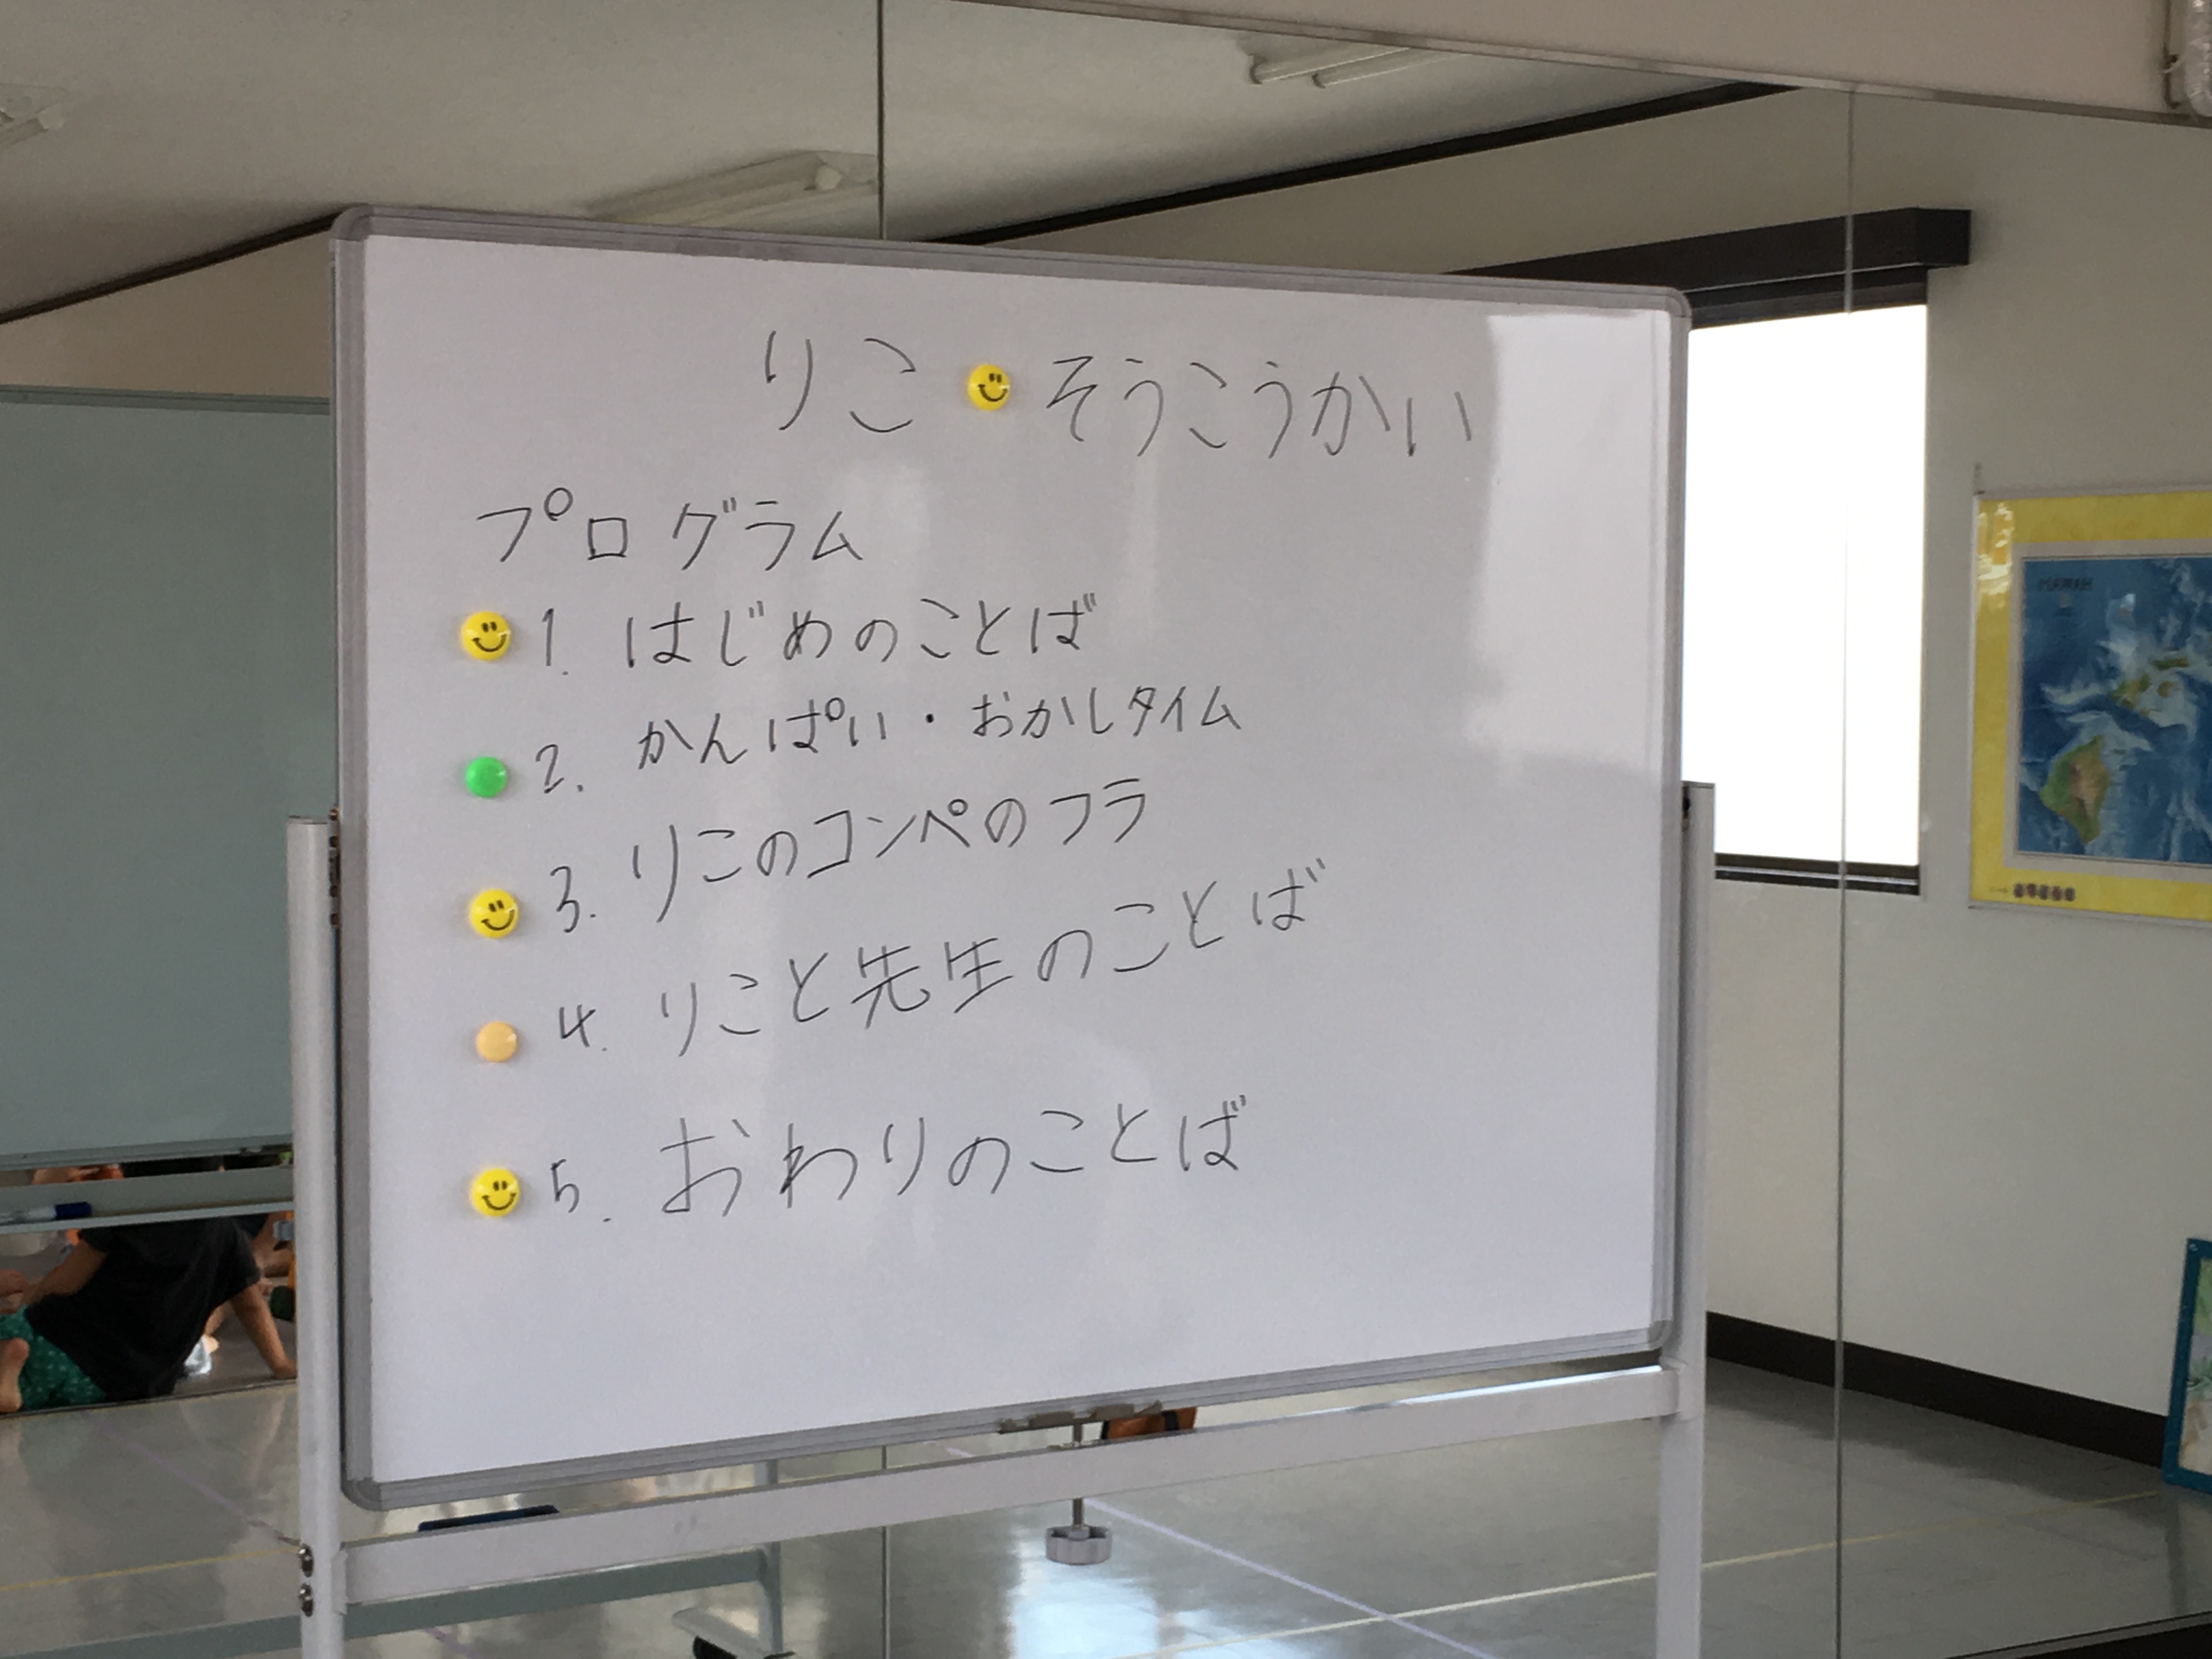 りこ そうこうかい
プログラム
1. はじめのことば
2. かんぱい・おかしタイム
3. りこのコンペのフラ
4. りこと先生のことば
5. おわりのことば
HAWAII